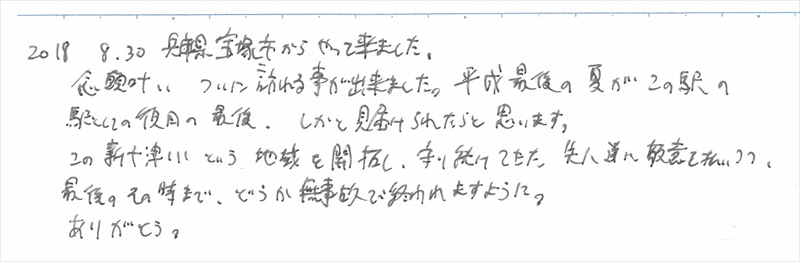 2018 8.30 兵庫県宝塚市からやって来ました。
念願叶い ついに訪れる事が出来ました。平成最後の夏がこの駅の
駅としての役目の最後、しかと見届けられたらと思います。
この新十津川という地域を開拓し、守り続けてきた先人達に敬意を払いつつ、
最後のその時まで、どうか無事故で終われますように。
ありがとう。